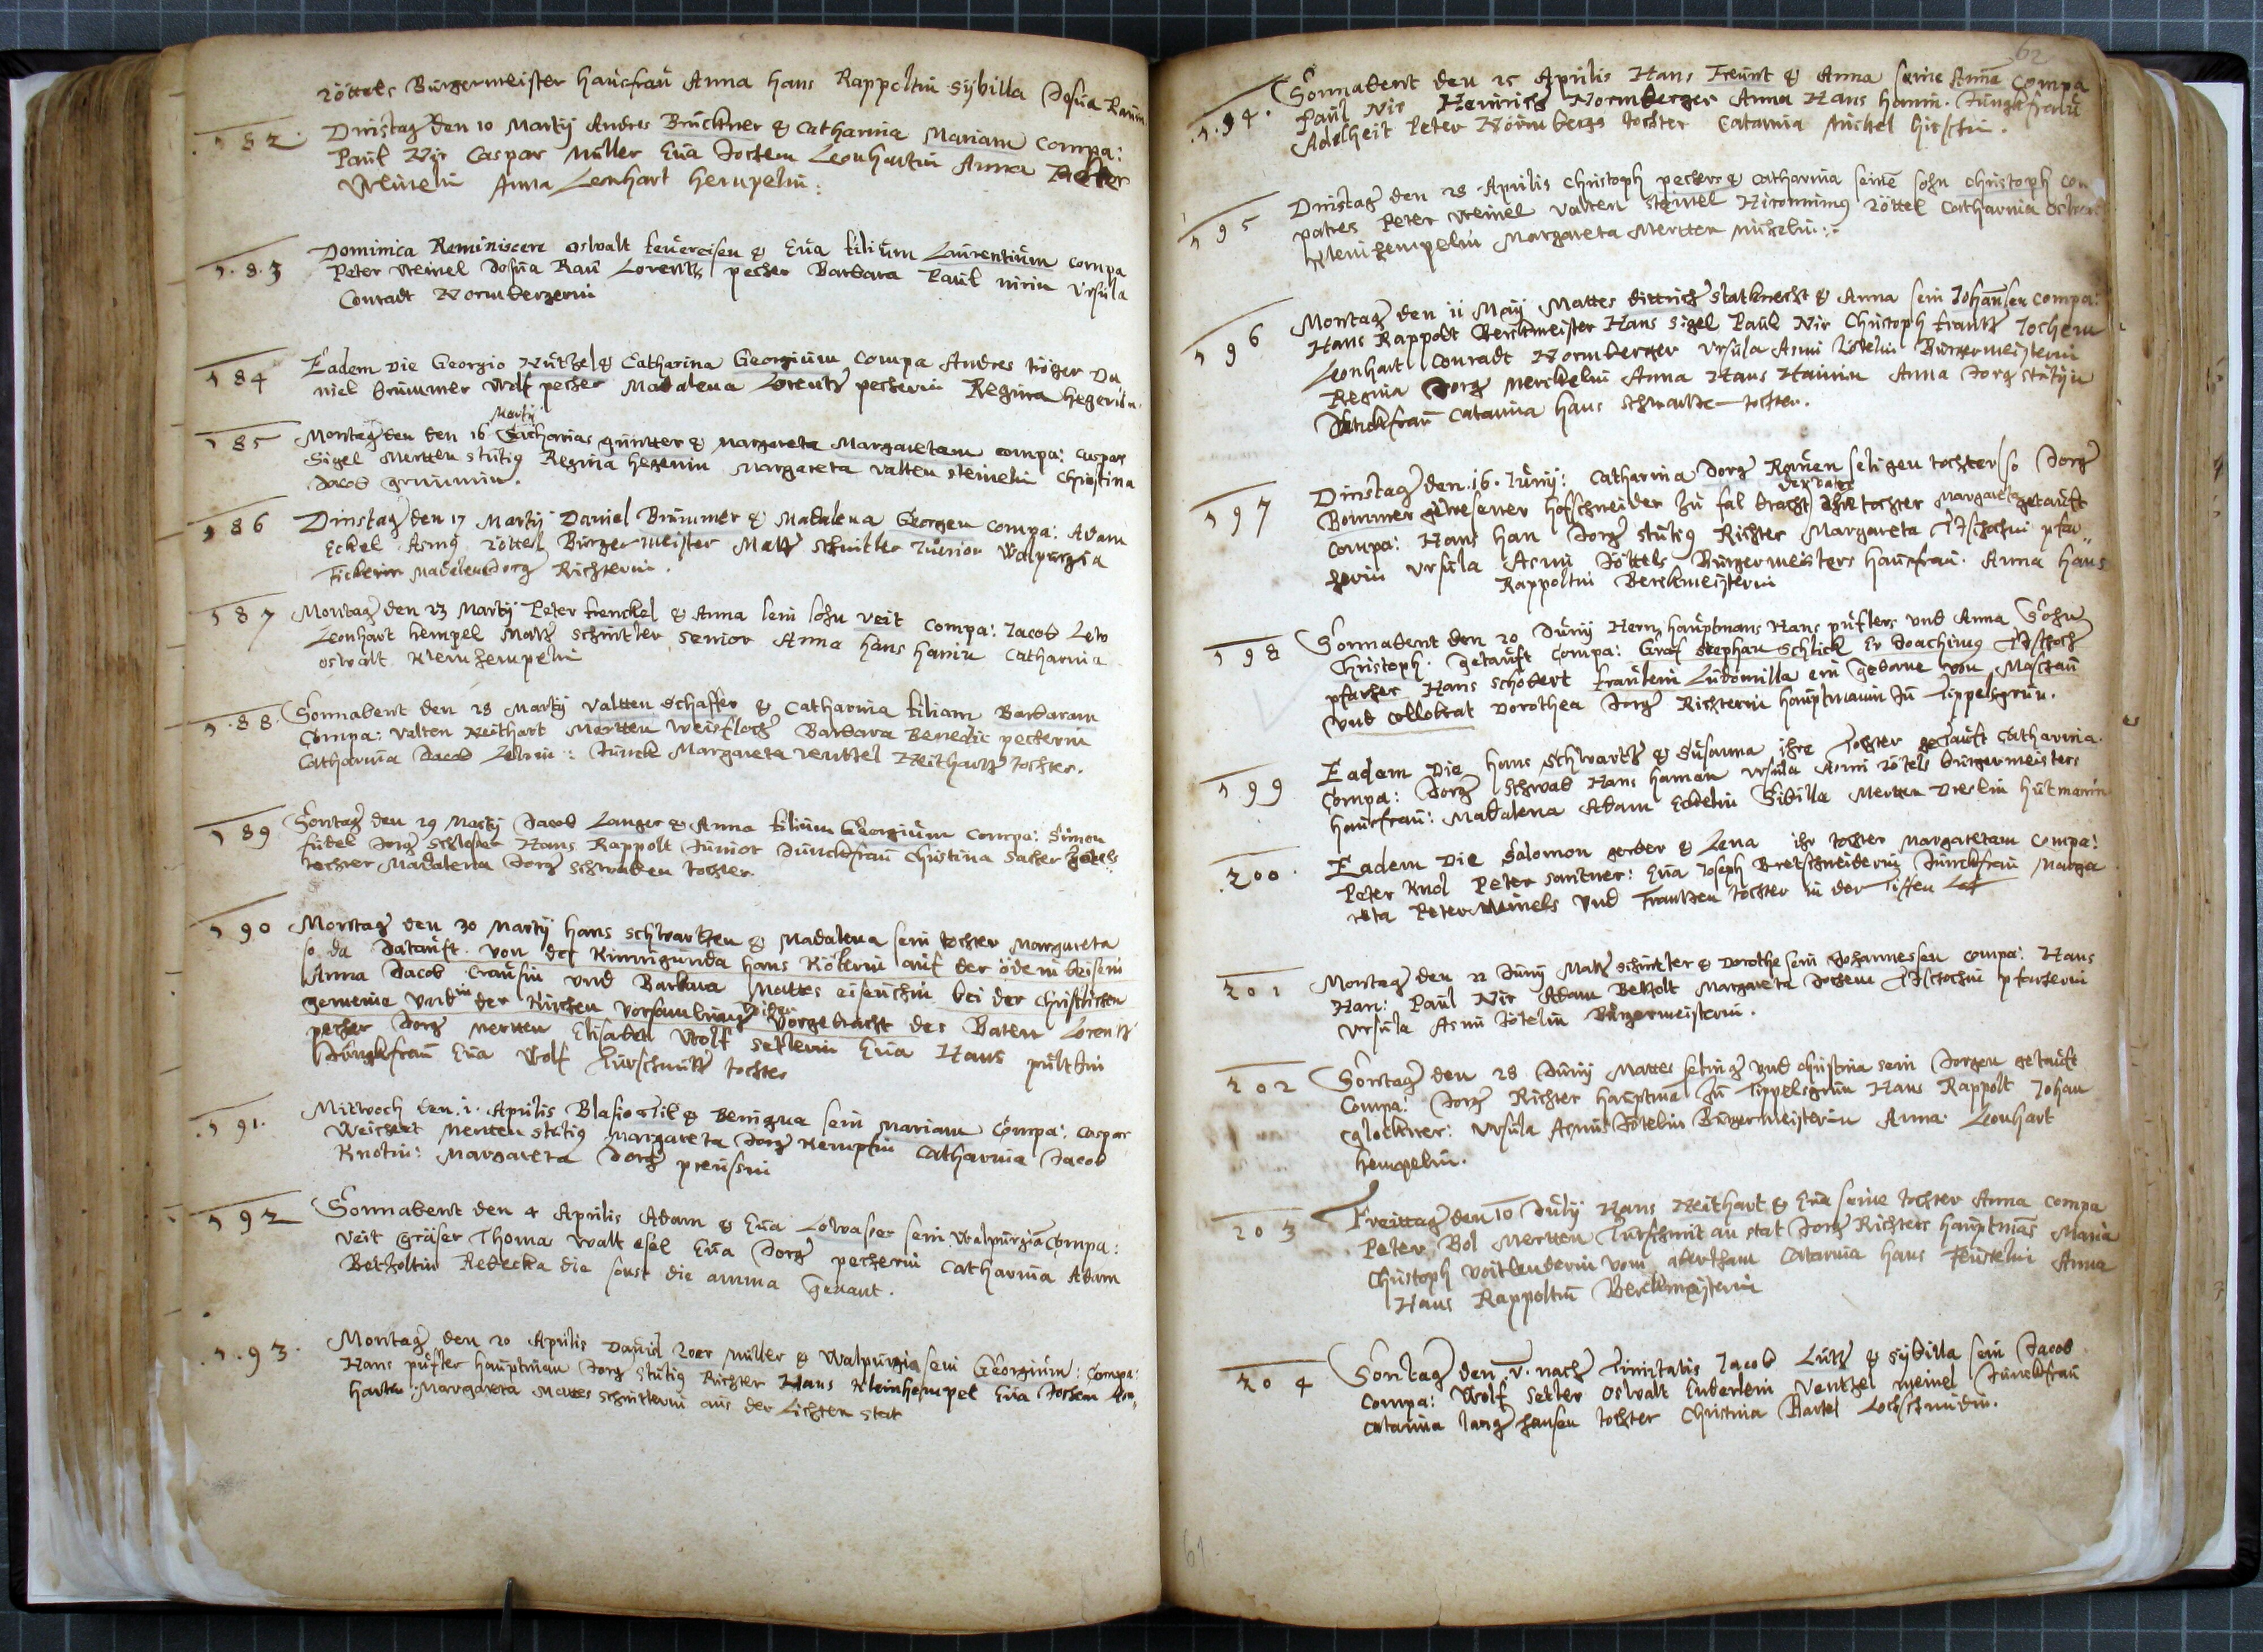 Röttels Bürgermeister hausfrau Anna Hans Rappoltin Sybilla Josua
182 Dinstag den 10 Martij Andres Brückner & Catharina Mariam Compa:
Paul Nir Caspar Müller Eua Jochem Leonhartin Anna Peter
Anna Lenhart Hempelin:
183 Dominica Reminiscere Oswalt feuereisen & Eua filium Laurentium Compa
Peter Josua Rau Lorentz pecher Barbara Paul nirin Ursula
Conradt Normbergerin
184 Eadem Die Georgio Nützel & Catharina Georgium Compa Andres tröger Da
niel brümmer Wolf pecher Madalena Lorentz pecherin Regina hegerin
185 Montag den den 16 Martij Zacharias güntter & Margareta Margaretam compa: Caspar
Sigel Mertten stütig Regina hegerin Margareta Valten steinelin Christina
Jacob
186 Dinstag den 17 Martij Daniel Brümmer & Madalena Georgen Compa: Adam
Eckel Asmg Röttel Bürgermeister Matz schnitler Junior Walpurgia
Fickerin Madalena Jorg Richterin.
187 Montag den 23 Martij Peter frenckel & Anna sein sohn Veit Compa: Jacob Lew
Leonhart Hempel Matz Schnittler senior Anna Hans hanin Catharina
Oswalt Kleinhempelin
188 Sonnabent den 28 Martij Valtten Schaffer & Catharina filiam Barbaram
Compa: Valten Neithart Mertten Weisfloch Barbara Benedic pecherin
Catharina Jacob Lewin: Junck Margareta Ventzel Neithartz tochter.
189 Sontag den 29 Martij Jacob Langer & Anna filium Georgium Compa: Simon
füdel Jorg Schlosser Hans Rappolt Junior Junckfrau Christina
tochter Madalena Jorg Schwaben tochter
190 Montag den 30 Martij Hans Schwartzen & Madalena sein tochter Margareta
so da Jatauft von der Kinnigunda Hans Kölerin auf der öde in beisein
Anna Jacob Crausin und Barbara Mattes eisenchin bei der Christlichen
gemeine und in der Kirchen Vorsamlung vorgebracht des Baten Lorentz
pecher Jorg Merten Elisabet Wolf Setlerin Eua Hans
Jungkfrau Eua Wolf Türschmitz tochter
191 Mitwoch den .1. Aprilis Blasio Til & Benigna sein Mariam Compa: Caspar
Weichart Merten Stütig Margareta Jorg Kempfin Catharina Jacob
Knotin: Margareta Jorg preussin
192 Sonnabent den 4 Aprilis Adam & Eua Lowasser sein Walpurgia Compa:
Veit Gräser Thoma Walt esel Eua Jorg pecherin Catharina Adam
Betzoltin Rebecka die sonst die amma genant.
193 Montag den 20 Aprilis Dauid müller & Walpurgia sein Georgium: Compa:
Hans püfler hauptman Jorg Stütig Richter Hans Kleinhempel Eua Jochem Leon
hartin Margareta Mattes Schnitterin aus der Lichten stat
61
62
194 Sonnabent den 25 Aprilis Hans Freunt & Anna seine Anna Compa
Paul Nir Heinrich Normberger Anna Hans hanin Jungkfrau
Adelheit Peter Nörmbergs tochter Catarina Michel hirschin.
195 Dinstag den 28 Aprilis Christoph pecher & Catharina seinen sohn Christoph Com
patres Peter Weinel Valten Steinel Hironimg Röttel Catharina Oswalt
Kleinhempelin Margareta Mertten Michelin:
196 Montag den 11 Maij Mattes dittrich statknecht & Anna sein Johansen Compa:
Hans Rappolt Berckmeister Hans Sigel Paul Nir Christoph frantz Jochem
Leonhart Conradt Normberger Ursula Asmi Rötelin Bürgermeisterin
Regina Jorg Merckelin Anna Hans Hainin Anna Jorg stütgin
Junckfrau Catarina Hans Schwartzen tochter.
197 Dinstag den .16. Junij: Catharina Jorg Rauen seligen tochter so Jorg
Bommer gewesener Hofschneider zu fal bracht der vater ihr tochter Margareta getauft
Compa: Hans Han Jorg Stütig Richter Margareta pfar
herin Ursula Asmi Röttels Bürgermeisters hausfrau. Anna Hans
Rappoltin Berckmeisterin
198 Sonnabent den 20 Junij Hern Hauptmans Hans püflers und Anna Sohn
Christoph. getauft Compa: Graf Stephan Schlick Er Joachimg
pfarher Hans Schobert fraulein Ludomilla ein geborne von Mastau
und Collobrat Dorothea Jorg Richterin Hauptmanin zu Tippelsgrün.
199 Eadem Die Hans Schwartz & Susanna ihre Tochter getauft Catharina.
Compa: Jorg Schwab Hans haman Ursula Asmi Rötels Bürgermeisters
hausfrau: Madalena Adam Eckelin Sibilla Merten Dreslin hütmanin
200 Eadem Die Salomon gerber & Lena ihr tochter Margaretam Compa:
Peter Knol Peter Santner: Eua Joseph Bretschneiderin Junckfrau Marga
reta Peter Weinels und Frantzen tochter in der Tiffen Lof
201 Montag den 22 Junij Matz Schintler & Dorothe sein Johannessen Compa: Hans
Han: Paul Nir Adam Betzolt Margareta Jochem pfarherin
Ursula Asmi Rötelin Bürgermeisterin.
202 Sontag den 28 Junij Mattes und Christina sein Jorgen getauft
Compa: Jorg Richter Hauptman zu Tippelsgrün Hans Rappolt Johan
Glockner: Ursula Asmus Rötelin Bürgermeisterin Anna Leonhart
Hempelin.
203 Freittag den 10 Julij Hans Neithart & Eua seine tochter Anna Compa
Peter Bol Mertten Türschmit an stat Jorg Richters Hauptmans Maria
Christoph Voitlenderin vom abertham Catarina Hans Anna
Hans Rappoltin Berckmeisterin
204 Sontag den .V. nach Trinitatis Jacob Lutz & Sybilla sein Jacob
Compa: Wolf Setler Oswalt Enderlein Ventzel Weinel Junckfrau
Catarina lang Hansen tochter Christina Bartel Lochschmidin.